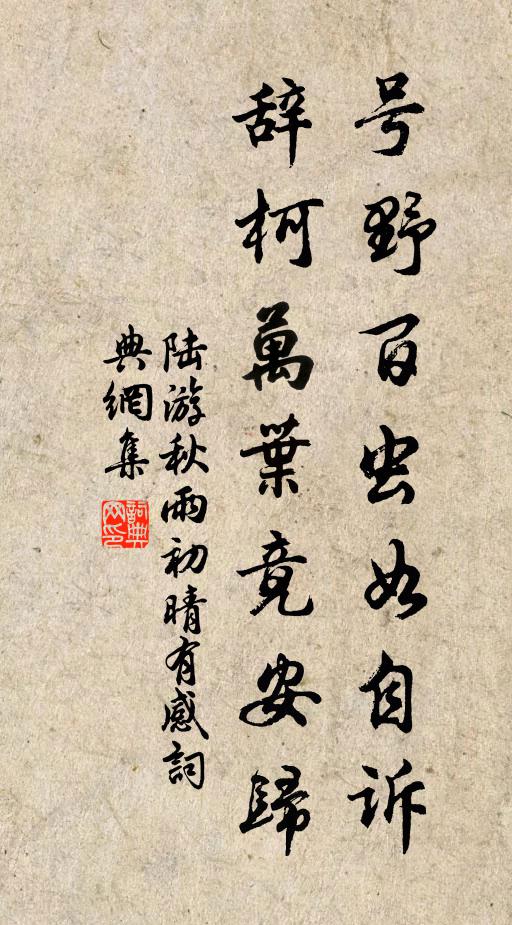 号野百虫如自诉
辞柯萬葉竟安歸
陆游秋雨初晴有感詞
典網集
詞典网印